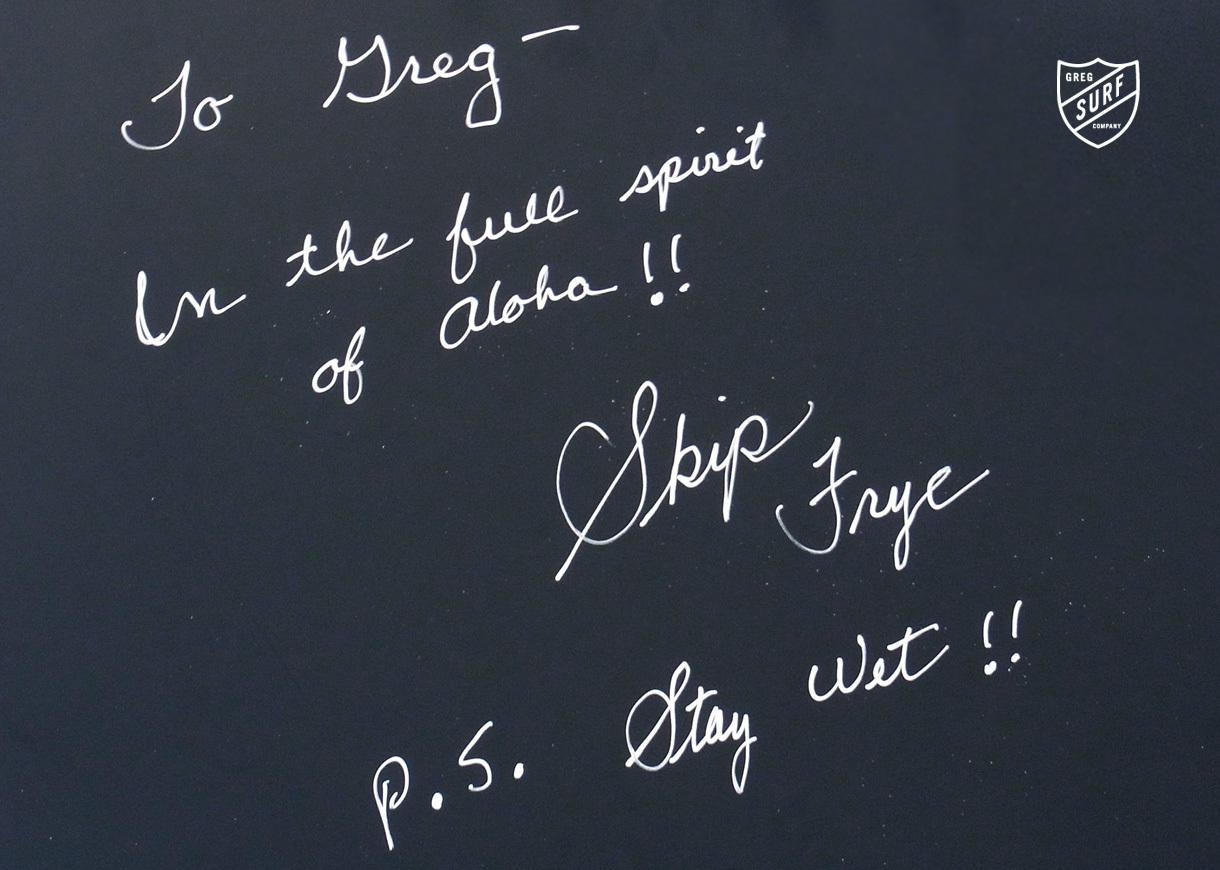 To Greg —
GREG
SURF
COMPANY
In the full spirit
of Aloha !!
Skip Frye
P.S. Stay Wet !!